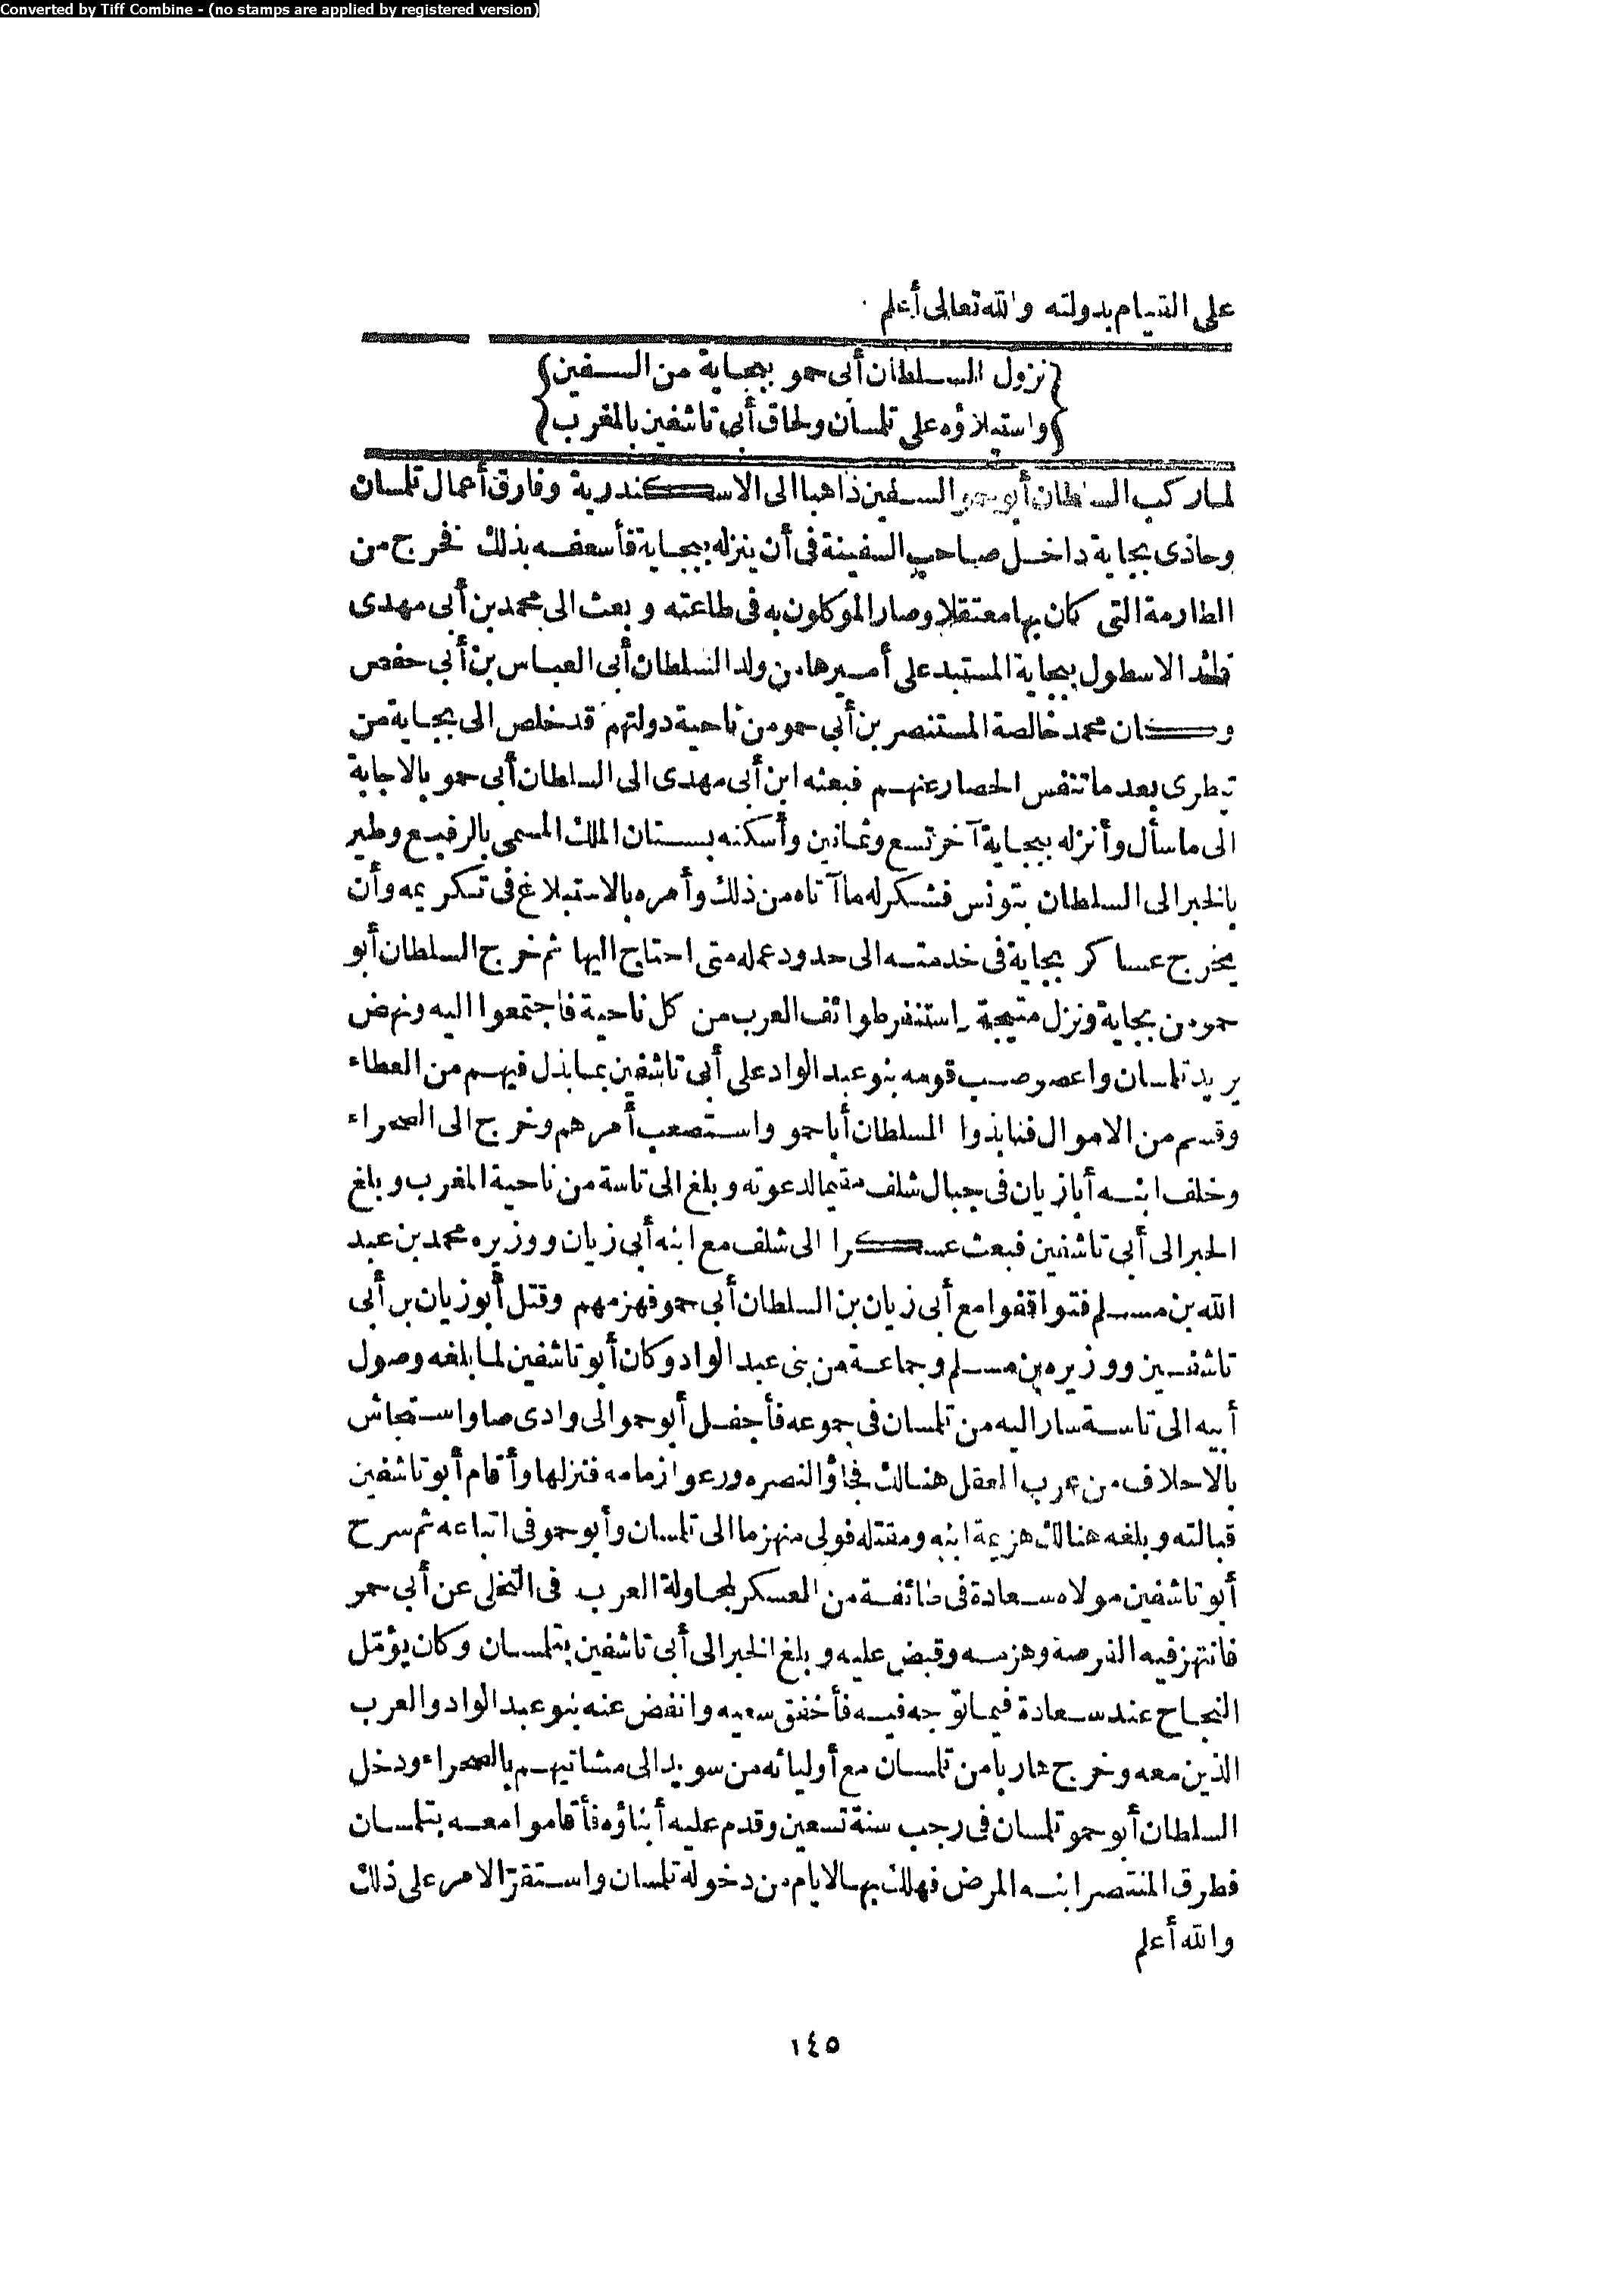 Converted by Tiff Combine - (no stamps are applied by registered version)
على القيام بدولته والله تعالى أعلم
{نزول السلطان أبى حمو ببجاية من السفين}
{واستيلاؤه على تلمسان ولحاق أبى تاشفين بالمغرب}
لما ركب السلطان أبو حمو السفين ذاهبا الى الاسكندرية وفارق أعمال تلمسان
وحاذى بجاية داخل صاحب السفينة فى أن ينزله ببجاية فأسعفه بذلك فخرج من
الطارمة التى كان بها معتقلا وصار الموكلون به فى طاعته وبعث الى محمد بن أبى مهدى
قائد الاسطول ببجاية المستبد على أميرها من ولد السلطان أبى العباس بن أبى حفص
وكان محمد خالصة المستنصر بن أبى حمو من ناحية دولتهم قد خلص الى بجاية من
تيطرى بعد ما تنفس الحصار عنهم فبعثه ابن أبى مهدى الى السلطان أبى حمو بالاجابة
الى ما سأل وأنزله ببجاية آخر تسع وثمانين وأسكنه بستان الملك المسمى بالرفيع وطير
بالخبر الى السلطان بتونس فشكر له ما آتاه من ذلك وأمره بالاستبلاغ فى تكريمه وأن
يخرج عساكر بجاية فى خدمته الى حدود عمله متى احتاج اليها ثم خرج السلطان أبو
حمو من بجاية ونزل متيجة واستنفر طوائف العرب من كل ناحية فاجتمعوا اليه ونهض
يريد تلمسان واعصوصب قومه بنو عبد الواد على أبى تاشفين بما بذل فيهم من العطاء
وقسم من الاموال فنابذوا السلطان أبا حمو واستصعب أمرهم وخرج الى الصحراء
وخلف ابنه أبا زيان فى جبال شلف مقيما لدعوته وبلغ الى تاسة من ناحية المغرب وبلغ
الخبر الى أبى تاشفين فبعث عسكرا الى شلف مع ابنه أبى زيان ووزيره محمد بن عبد
الله بن مسلم فتواقفوا مع أبى زيان بن السلطان أبى حمو فهزمهم وقتل أبو زيان بن أبى
تاشفين ووزيره بن مسلم وجماعة من بنى عبد الواد وكان أبو تاشفين لما بلغه وصول
أبيه الى تاسة سار اليه من تلمسان فى جموعه فأجفل أبو حمو الى وادى صا واستجاش
بالاحلاف من عرب المعقل هنالك فجاؤا لنصره ورعوا زمامه فنزلها وأقام أبو تاشفين
قبالته وبلغه هنالك هزيمة ابنه ومقتله فولى منهزما الى تلمسان وأبو حمو فى اتباعه ثم سرح
أبو تاشفين مولاه سعادة فى طائفة من العسكر لمحاولة العرب فى التخلى عن أبى حمو
فانتهز فيه الفرصة وهزمه وقبض عليه وبلغ الخبر الى أبى تاشفين بتلمسان وكان يؤمّل
النجاح عند سعادة فيما توجه فيه فأخفق سعيه وانفض عنه بنو عبد الواد والعرب
الذين معه وخرج هاربا من تلمسان مع أوليائه من سويد الى مشاتيهم بالصحراء ودخل
السلطان أبو حمو تلمسان فى رجب سنة تسعين وقدم عليه أبناؤه فأقاموا معه بتلمسان
فطرق المنتصر ابنه المرض فهلك بها لايام من دخوله تلمسان واستقرّ الامر على ذلك
والله أعلم
١٤٥